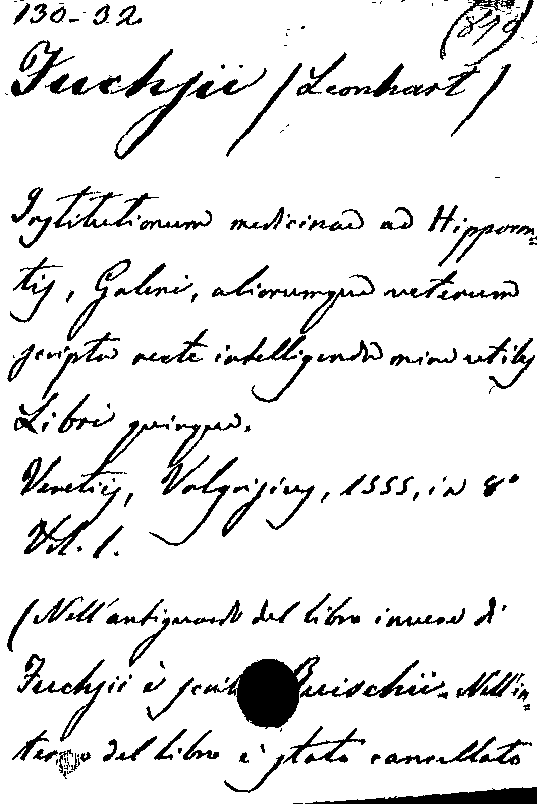 130-32 (879)
Fuchsii (Leonhart)
Institutionum medicinae ad Hippocra=
tis, Galeni, aliorumque veterum
scripta recte intelligenda mire utiles
Libri quinque.
Venetijs, Valgrisius, 1555, in 8°
Vol. 1.
(Nell'antiguardo del libro invece di
Fuchsii è Buischii. Nell'in=
terno del libro è stato cancellato